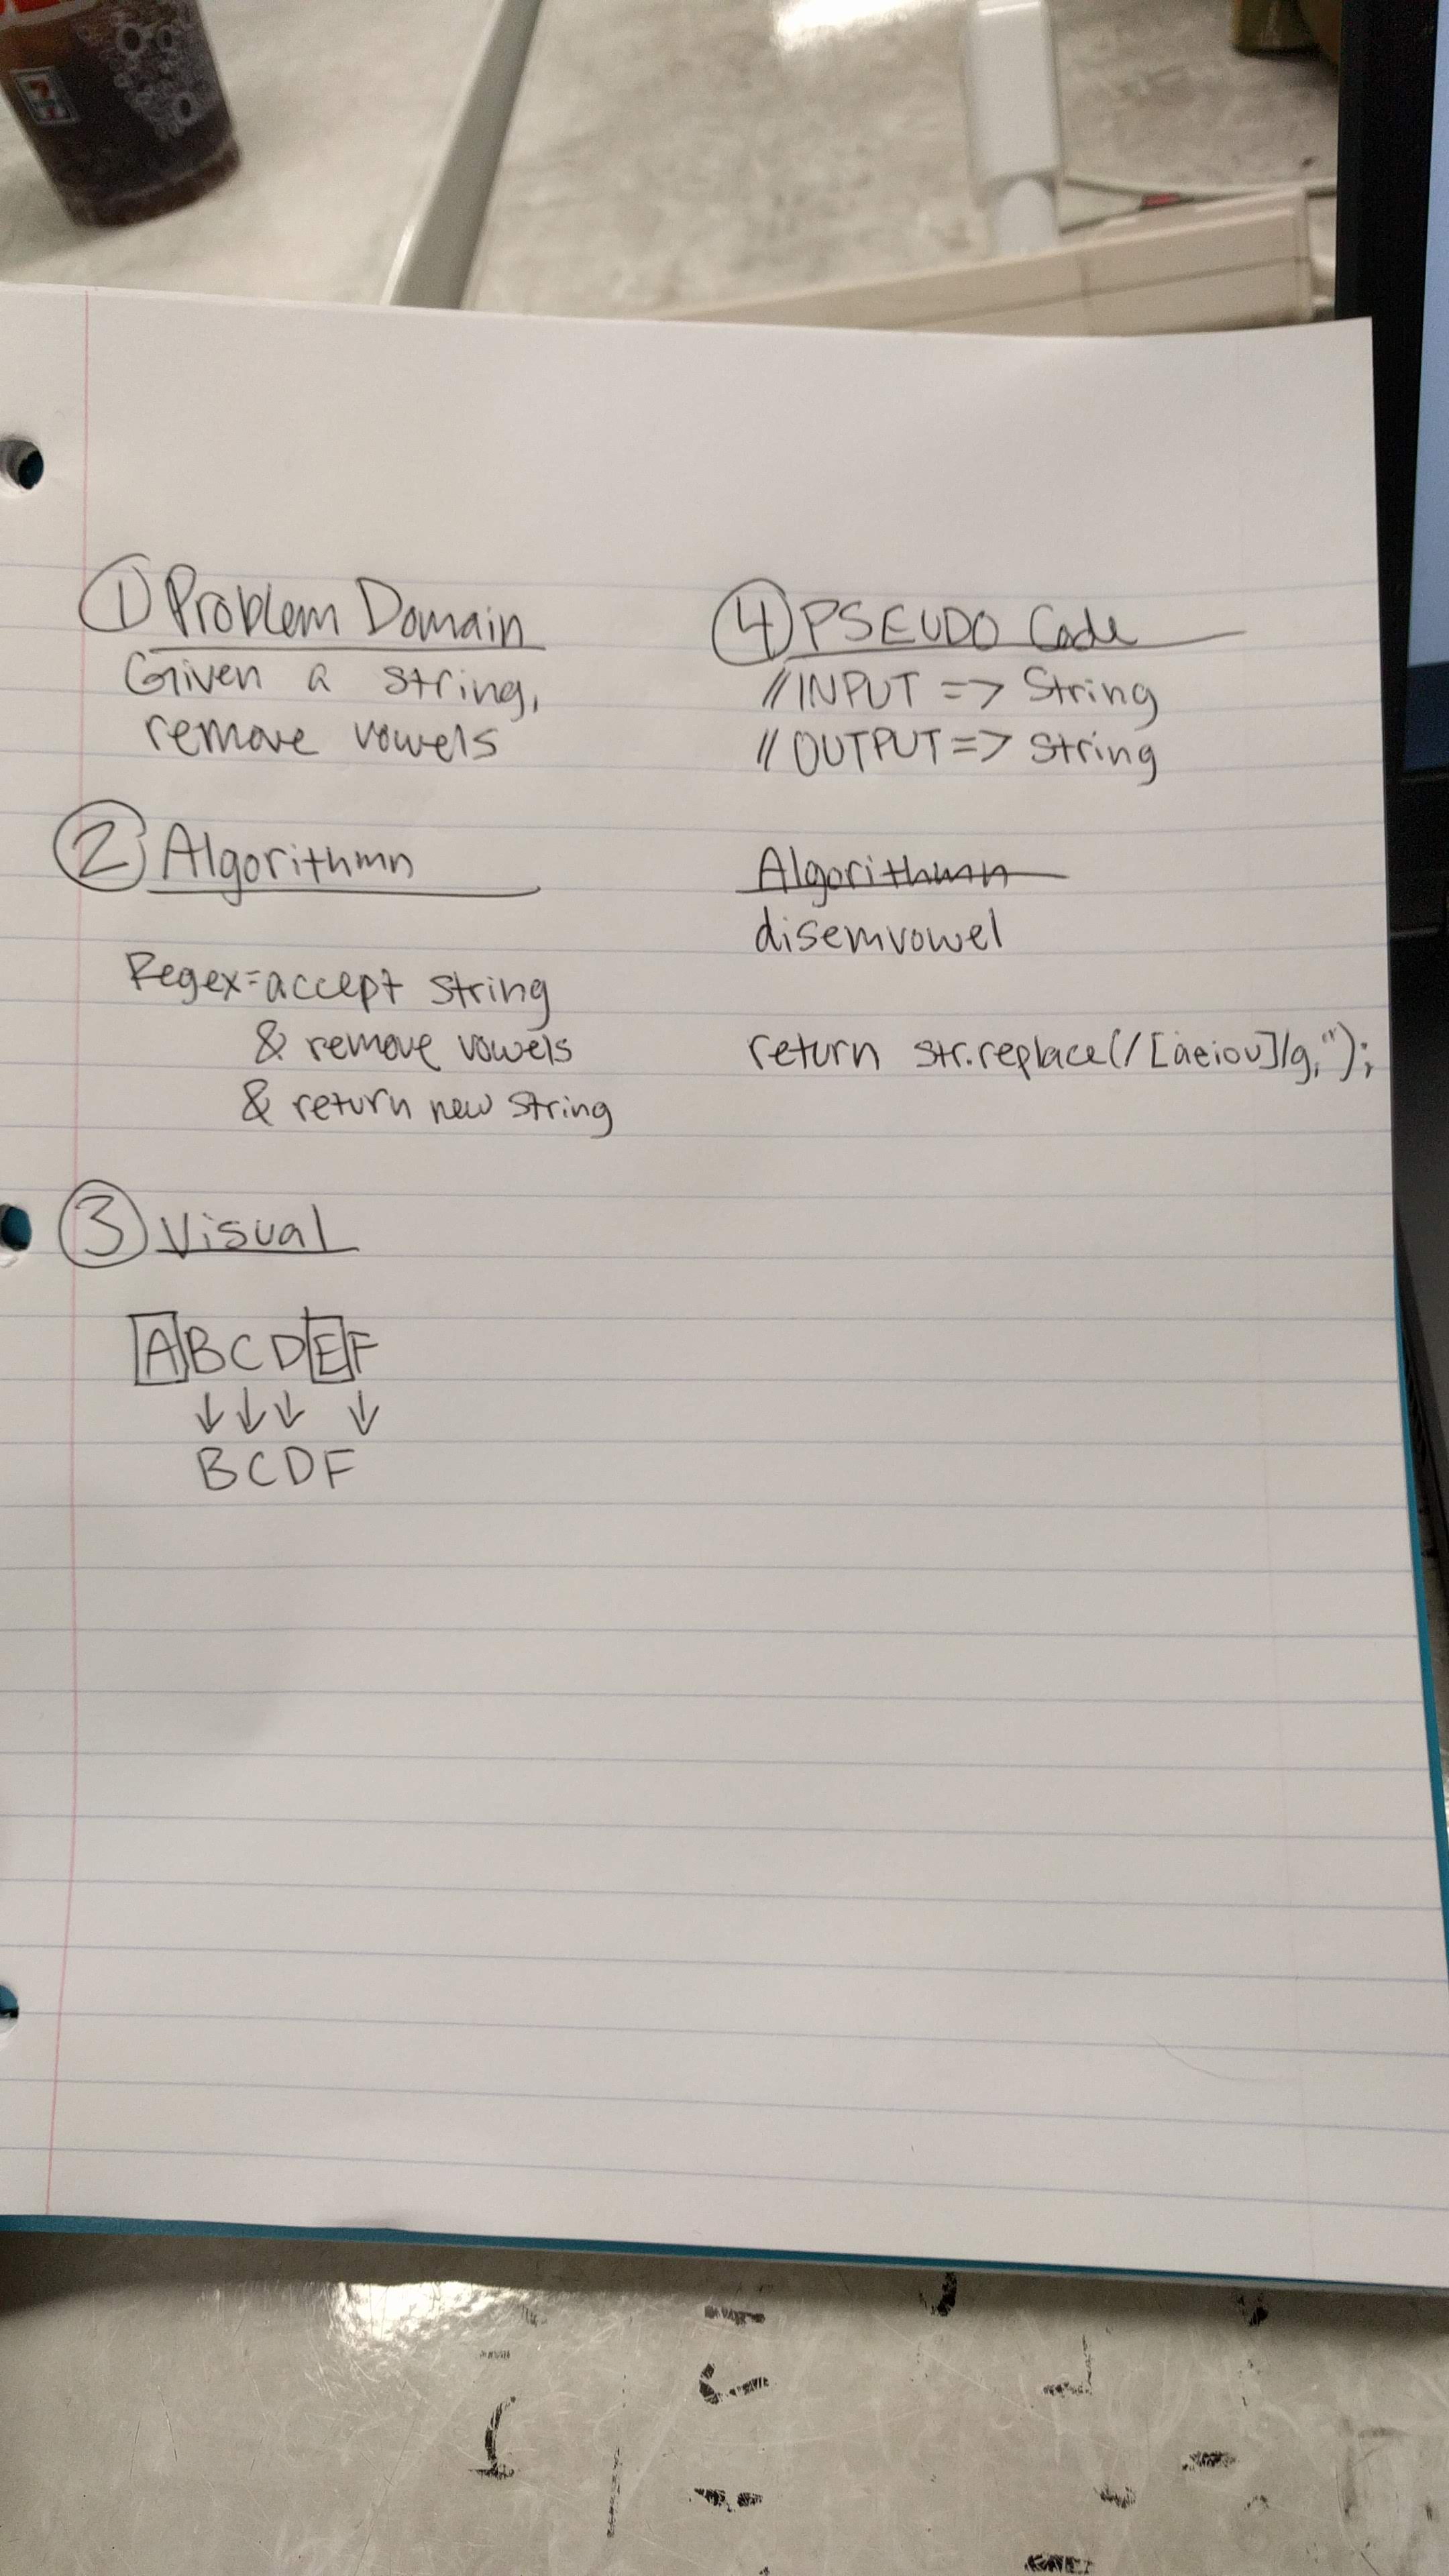 ① Problem Domain
Given a string,
remove vowels
② Algorithmn
Regex=accept string
& remove vowels
& return new string
③ Visual
ABCDEF
↓↓↓ ↓
BCDF
④ PSEUDO Code
//INPUT => String
//OUTPUT => String
Algorithmn
disemvowel
return str.replace(/[aeiou]/g,'');